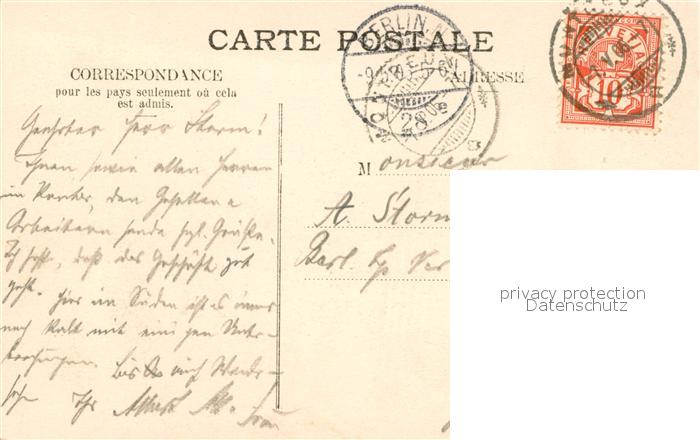 CARTE POSTALE
CORRESPONDANCE
pour les pays seulement où cela
est admis.
ADRESSE
BERLIN
MONTREUX
HELVETIA
10
Geehrter Herr Storm!
Ihnen sowie allen Herren
im Kontor, den Gesellen
Arbeitern sende
Ich hoffe, daß das Geschäft gut
geht. Hier im Süden ist es immer
noch kalt mit einigen Unter-
brechungen. Bis auf Wieder-
sehn Ihr Albert
Frau
Monsieur
A. Storm
Berl.
privacy protection
Datenschutz